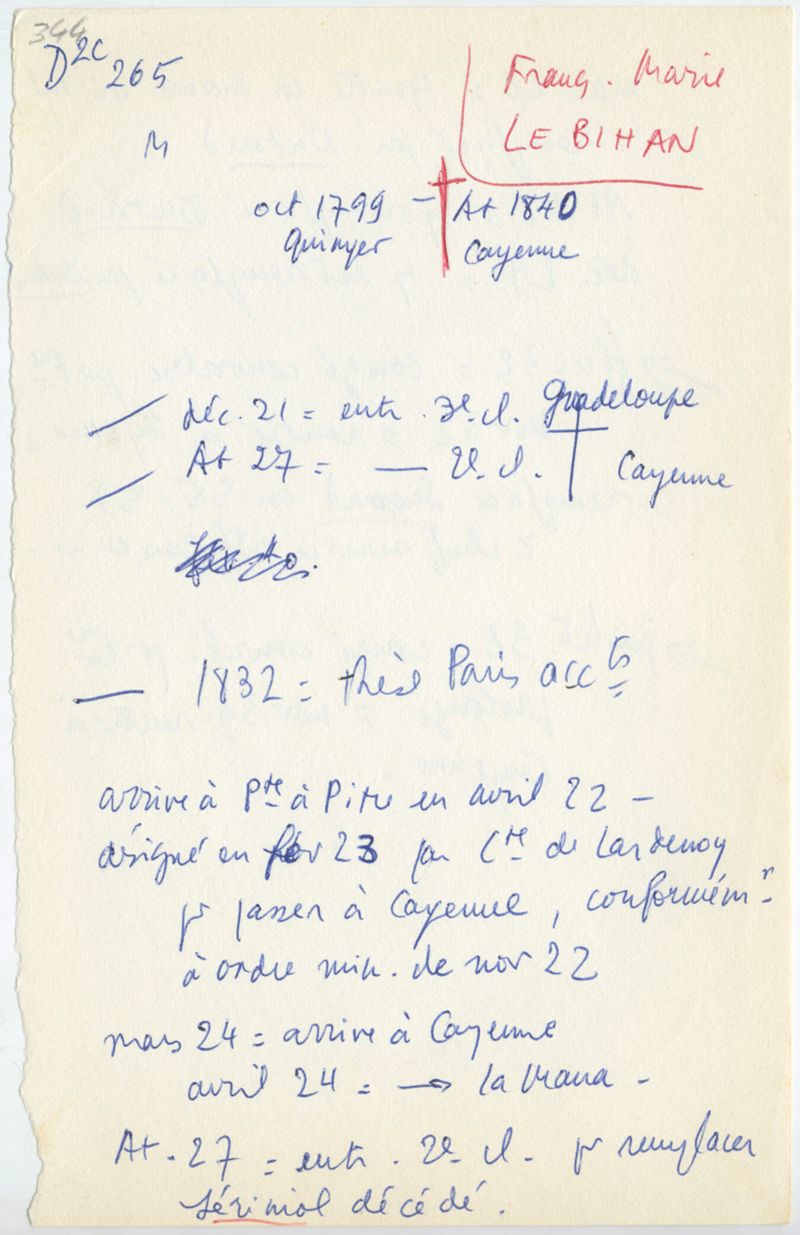 344
D2C 265
Franç. Marie
LE BIHAN
M
oct 1799 – † At 1840
Quimper Cayenne
déc. 21 = entr. 3e cl. Guadeloupe
At 27 = — 2e cl. Cayenne
— 1832 = thèse Paris accts
arrive à Pte à Pitre en avril 22 –
désigné en fév 23 par Cte de Lardenoy
pr passer à Cayenne, conformémt
à ordre min. de nov 22
mars 24 = arrive à Cayenne
avril 24 = → la Mana –
At. 27 = entr. 2e cl. pr remplacer
Sériniol décédé.